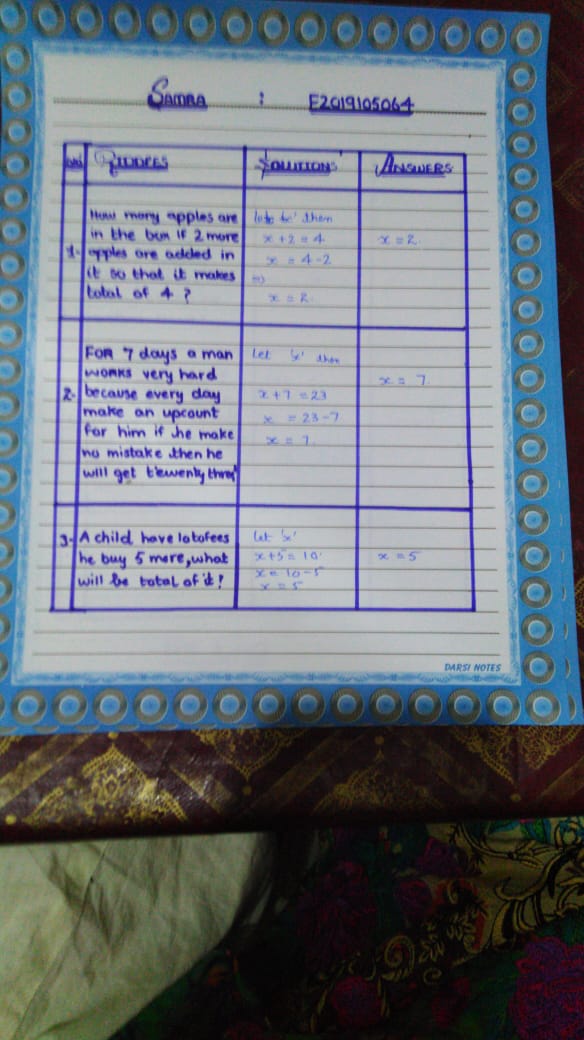 SAMRA : E2019105064
RIDDLES SOLUTIONS ANSWERS
1- How many apples are
in the box if 2 more
apples are added in
it so that it makes
total of 4 ?
let 'x' then
x + 2 = 4
x = 4 - 2
x = 2.
x = 2.
2- FOR 7 days a man
works very hard
because every day
make an upcount
for him if he make
no mistake then he
will get twenty three
Let 'x' then
x + 7 = 23
x = 23 - 7
x = 7.
x = 7.
3- A child have 10 tofees
he buy 5 more, what
will be total of it?
Let 'x'
x + 5 = 10
x = 10 - 5
x = 5
x = 5
DARSI NOTES